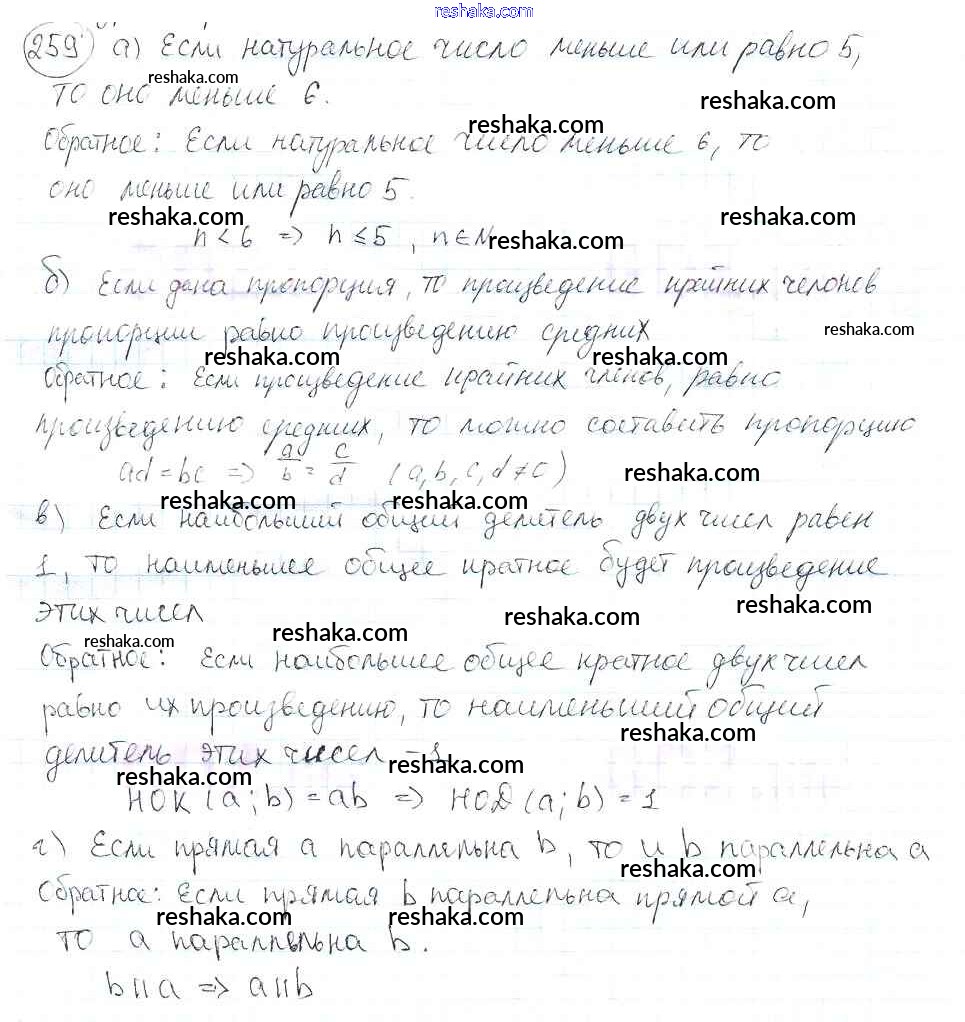 reshaka.com
259 а) Если натуральное число меньше или равно 5,
reshaka.com
то оно меньше 6.
reshaka.com
reshaka.com
Обратное: Если натуральное число меньше 6, то
оно меньше или равно 5.
reshaka.com reshaka.com
n < 6 => n ≤ 5, n ∈ N
reshaka.com
б) Если дана пропорция, то произведение крайних челонов
пропорции равно произведению средних
reshaka.com
reshaka.com reshaka.com
Обратное: Если произведение крайних членов, равно
произведению средних, то можно составить пропорцию
ad = bc => a/b = c/d (a, b, c, d ≠ 0)
reshaka.com
reshaka.com reshaka.com
в) Если наибольший общий делитель двух чисел равен
1, то наименьшее общее кратное будет произведение
reshaka.com
этих чисел
reshaka.com
reshaka.com reshaka.com
Обратное: Если наибольшее общее кратное двух чисел
равно их произведению, то наименьший общий
reshaka.com
делитель этих чисел – 1
reshaka.com reshaka.com
НОК (a; b) = ab => НОД (a; b) = 1
г) Если прямая a параллельна b, то и b параллельна a
reshaka.com
Обратное: Если прямая b параллельна прямой a,
reshaka.com reshaka.com reshaka.com
то a параллельна b.
b || a => a || b